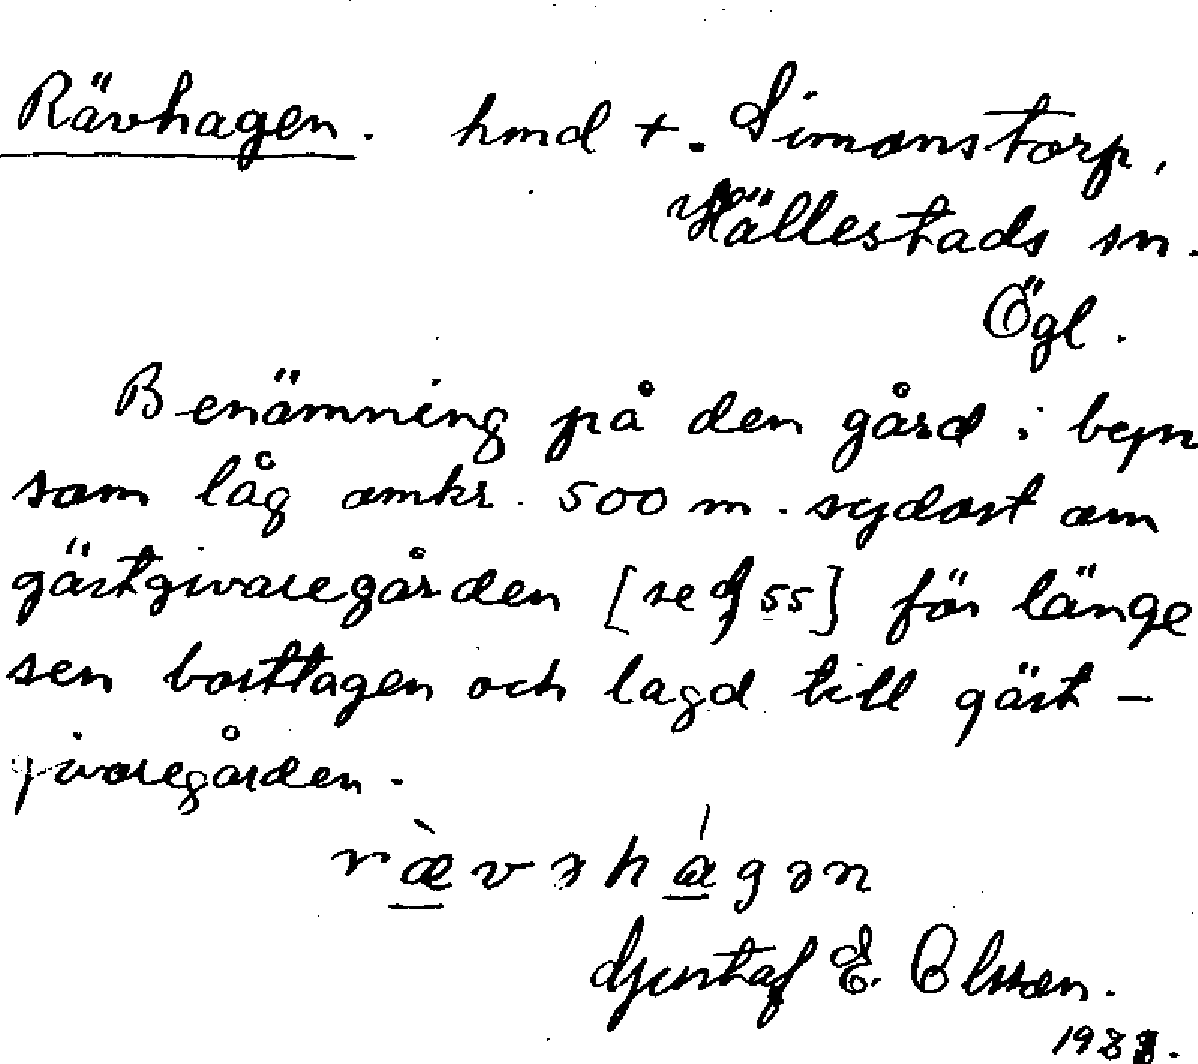 Rävhagen. hmd +. Simonstorp,
Hällestads sn.
Ögl.
Benämning på den gård i byn
som låg omkr. 500 m. sydost om
gästgivaregården [se 55] för länge
sen borttagen och lagd till gäst-
givaregården.
ræ̀vəhágən
Gustaf E. Olsson.